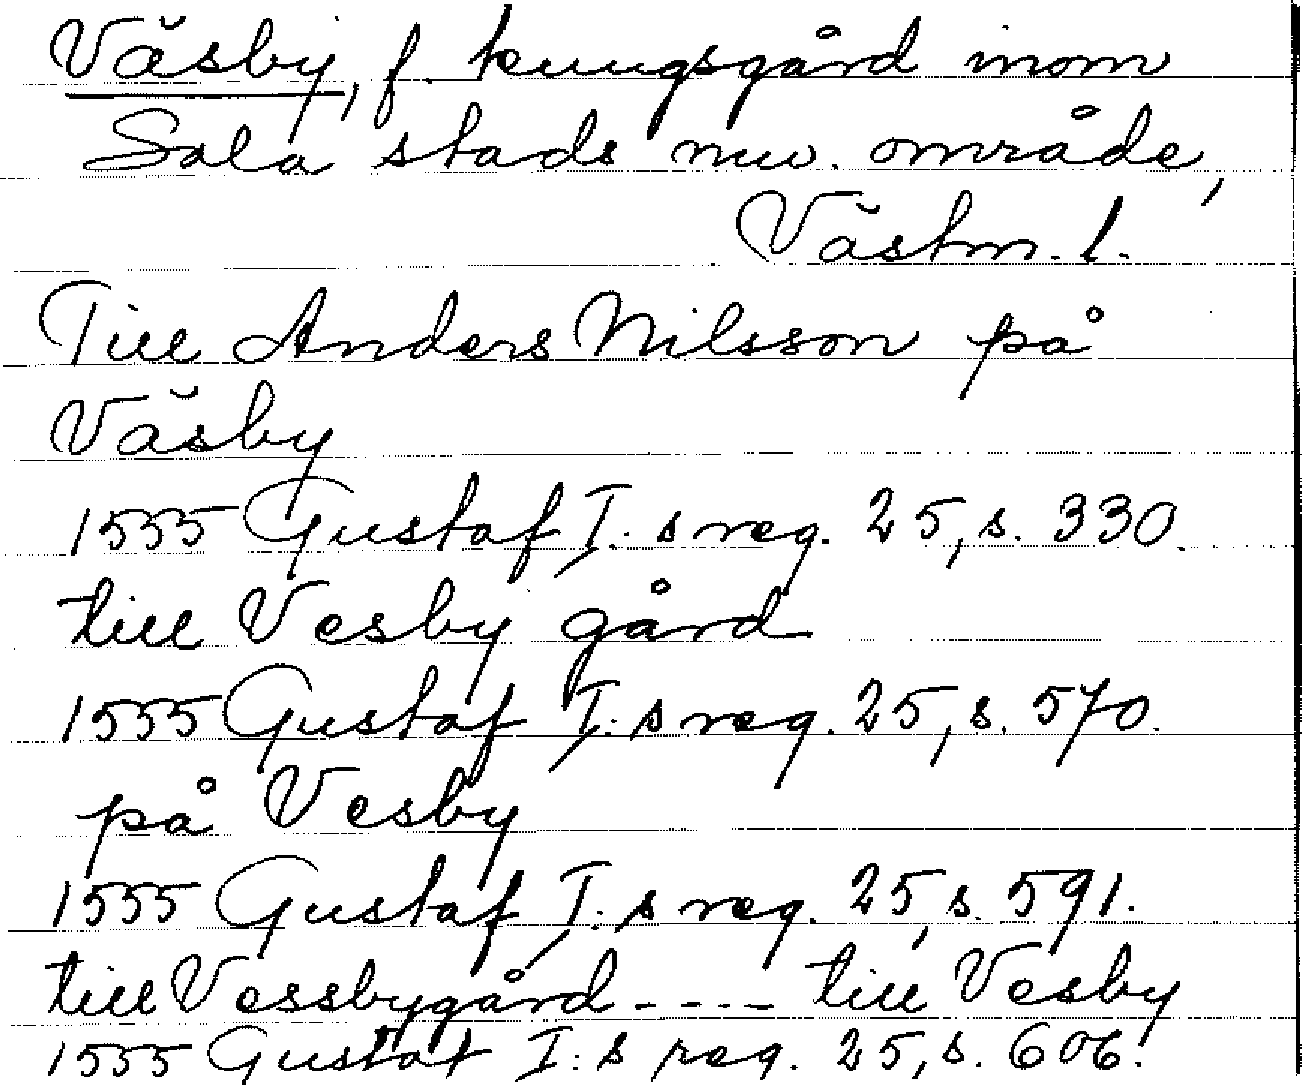 Väsby, f. kungsgård inom
Sala stads nuv. område,
Västm. l.
Till Anders Nilsson på
Väsby
1555 Gustaf I. s reg. 25, s. 330.
till Vesby gård
1555 Gustaf I: s reg. 25, s. 570.
på Vesby
1555 Gustaf I: s reg. 25, s. 591.
till Vessbygård - - - - till Vesby
1555 Gustaf I: s reg. 25, s. 606.